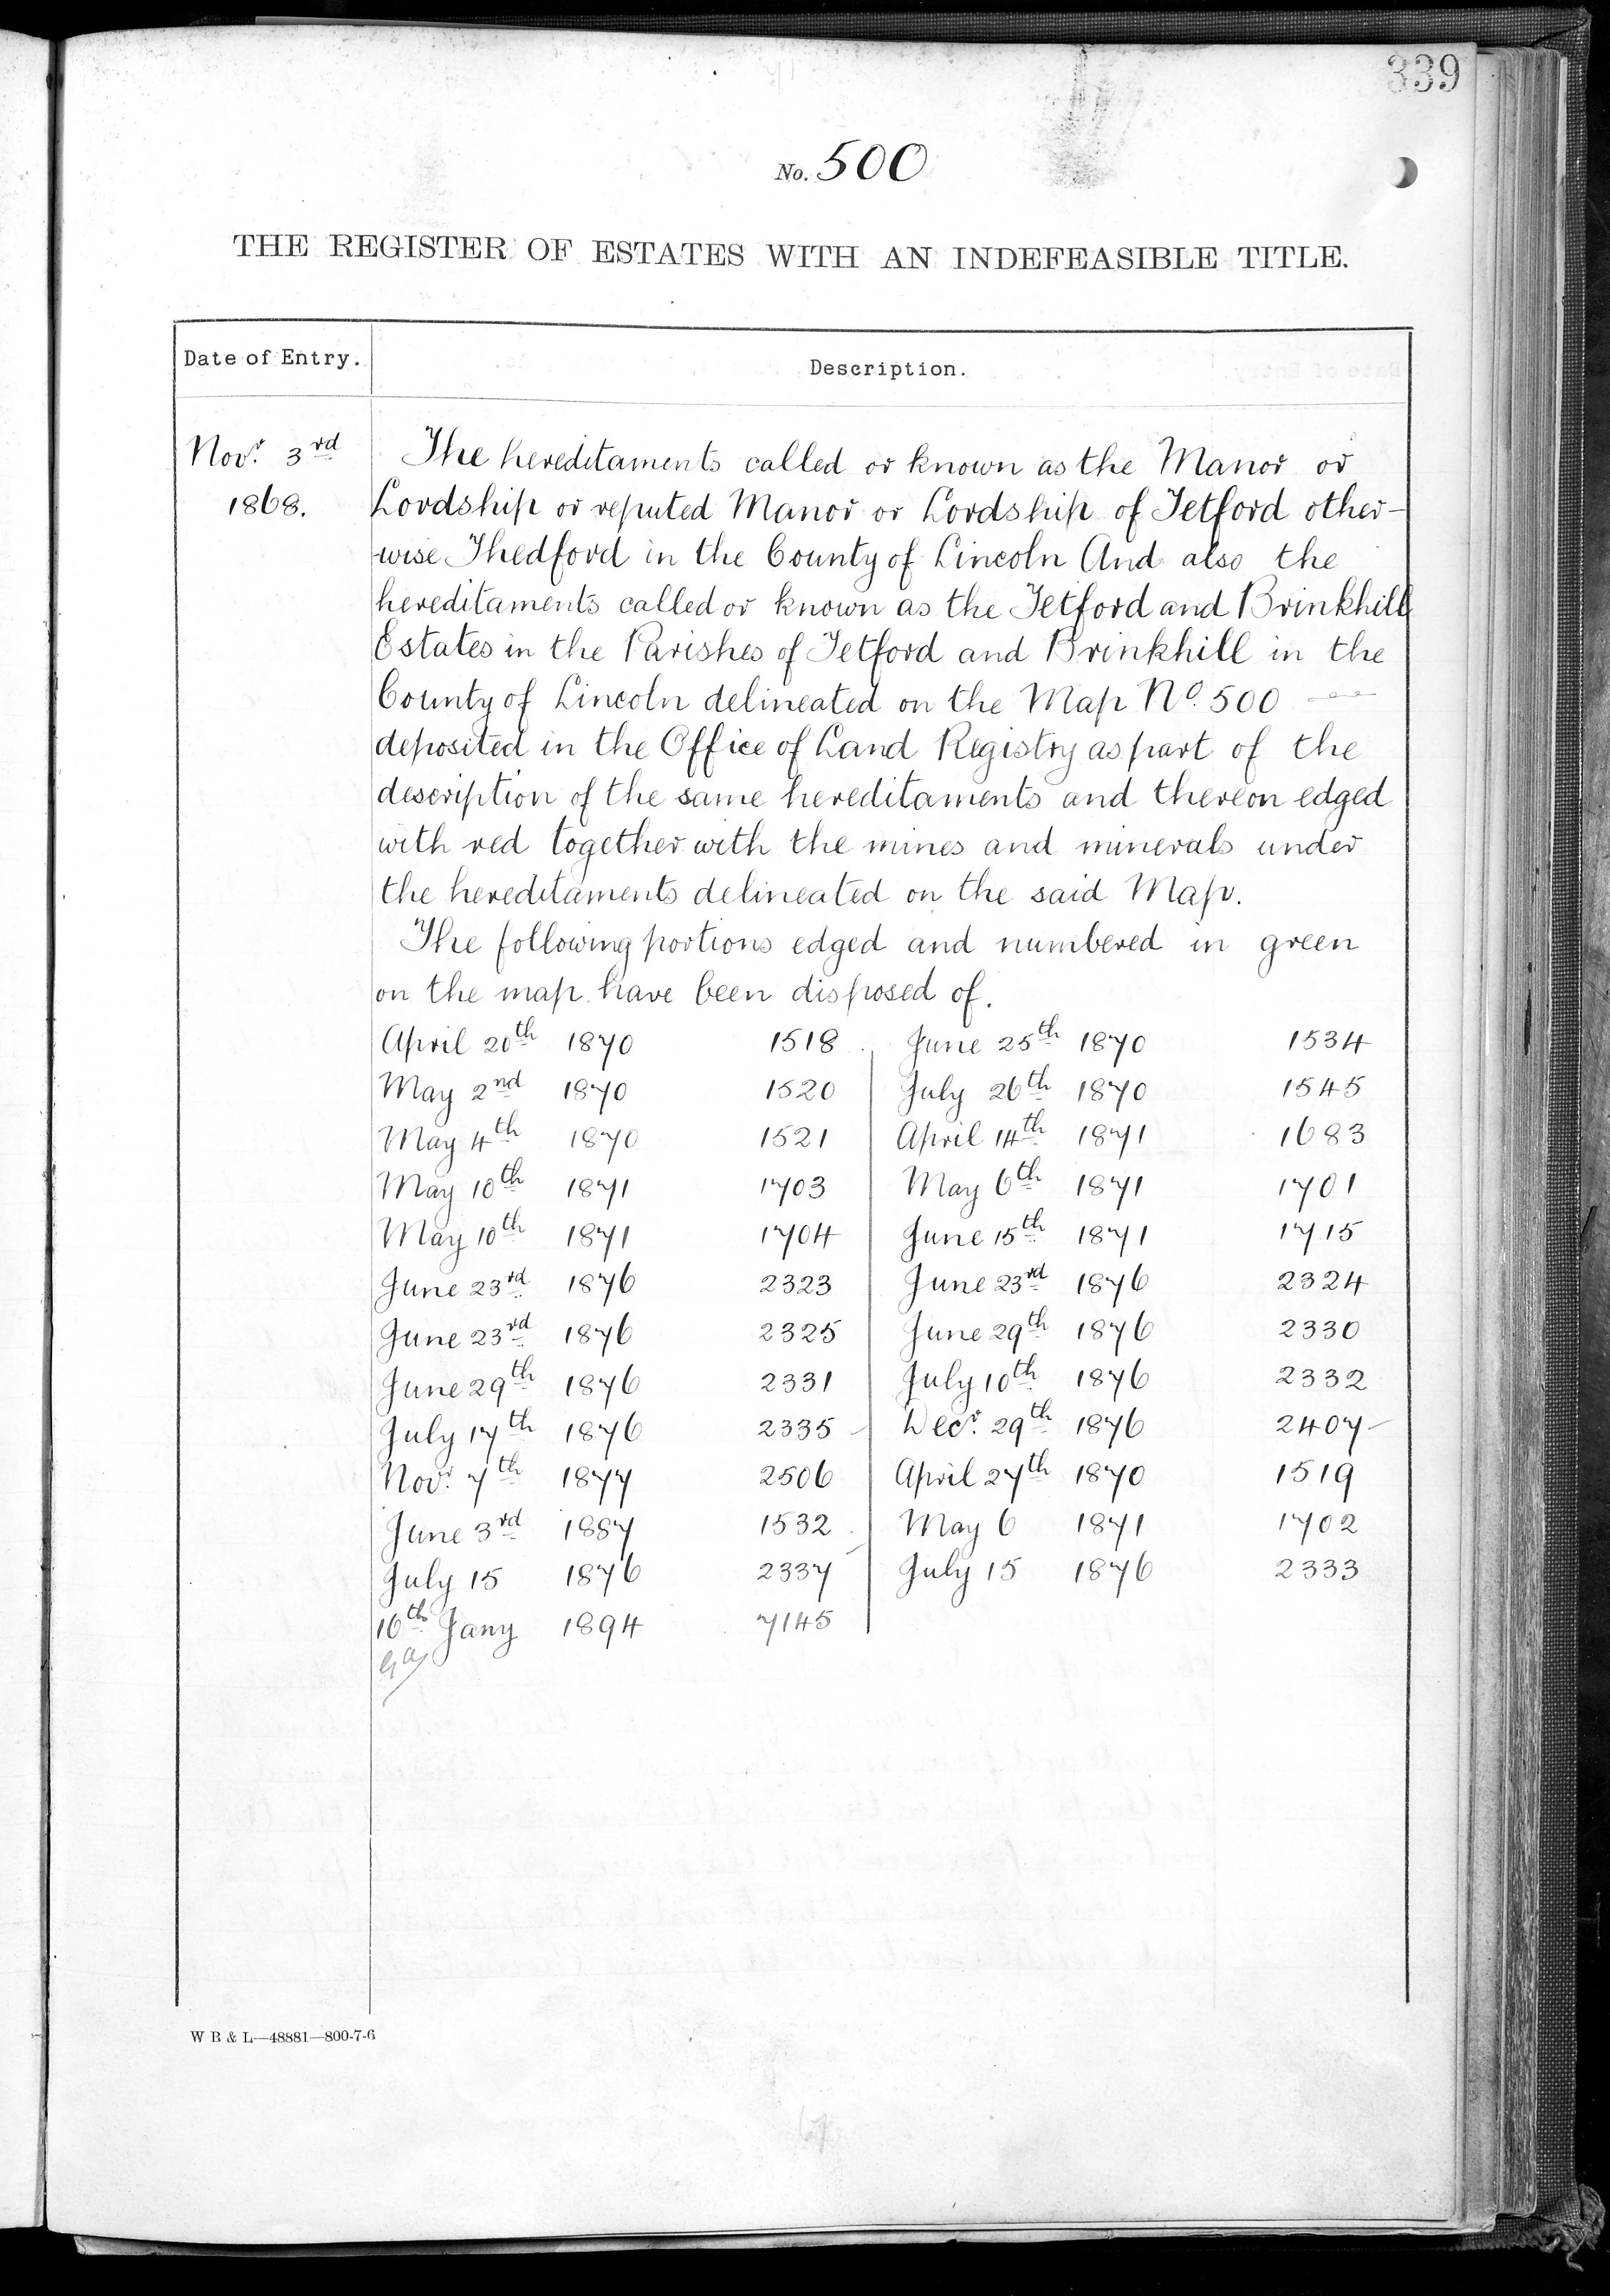 339
No. 500
THE REGISTER OF ESTATES WITH AN INDEFEASIBLE TITLE.
Date of Entry. Description.
Novr. 3rd The hereditaments called or known as the Manor or
1868. Lordship or reputed Manor or Lordship of Tetford other-
wise Thedford in the County of Lincoln And also the
hereditaments called or known as the Tetford and Brinkhill
Estates in the Parishes of Tetford and Brinkhill in the
County of Lincoln delineated on the Map No. 500
deposited in the Office of Land Registry as part of the
description of the same hereditaments and thereon edged
with red together with the mines and minerals under
the hereditaments delineated on the said Map.
The following portions edged and numbered in green
on the map have been disposed of.
April 20th 1870 1518 June 25th 1870 1534
May 2nd 1870 1520 July 26th 1870 1545
May 4th 1870 1521 April 14th 1871 1683
May 10th 1871 1703 May 6th 1871 1701
May 10th 1871 1704 June 15th 1871 1715
June 23rd 1876 2323 June 23rd 1876 2324
June 23rd 1876 2325 June 29th 1876 2330
June 29th 1876 2331 July 10th 1876 2332
July 17th 1876 2335 Decr. 29th 1876 2407
Novr. 7th 1877 2506 April 27th 1870 1519
June 3rd 1887 1532 May 6 1871 1702
July 15 1876 2337 July 15 1876 2333
16th Jany 1894 7145
W B & L—48881—800-7-6